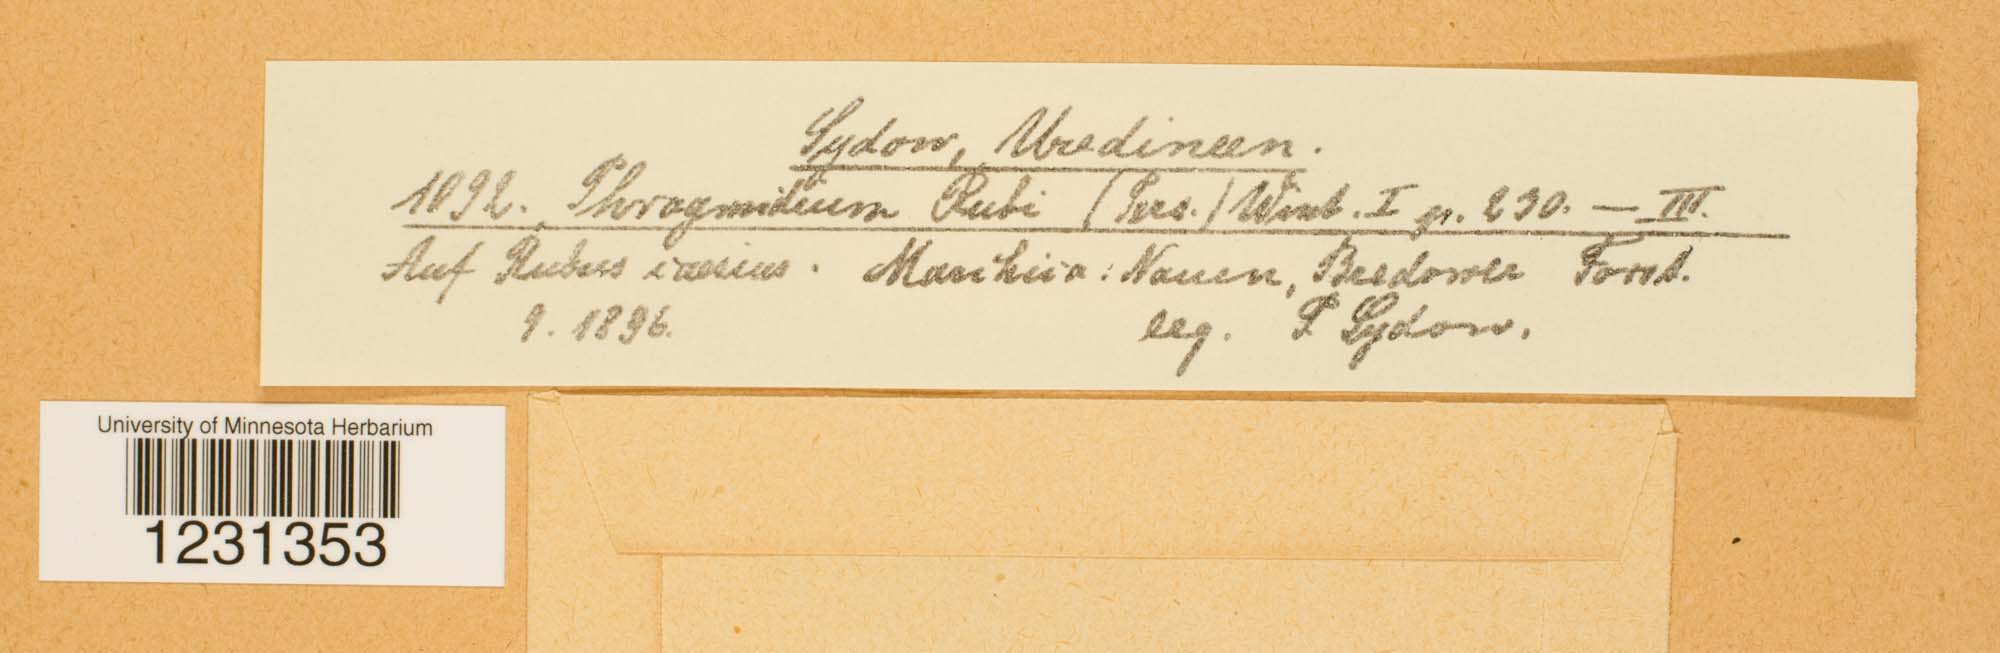 Sydow, Uredineen.
1092. Phragmidium Rubi (Pers.) Wint. I p. 230. — III.
Auf Rubus caesius. Marchia: Nauen, Bredower Forst.
9. 1896. leg. P Sydow.
University of Minnesota Herbarium
1231353